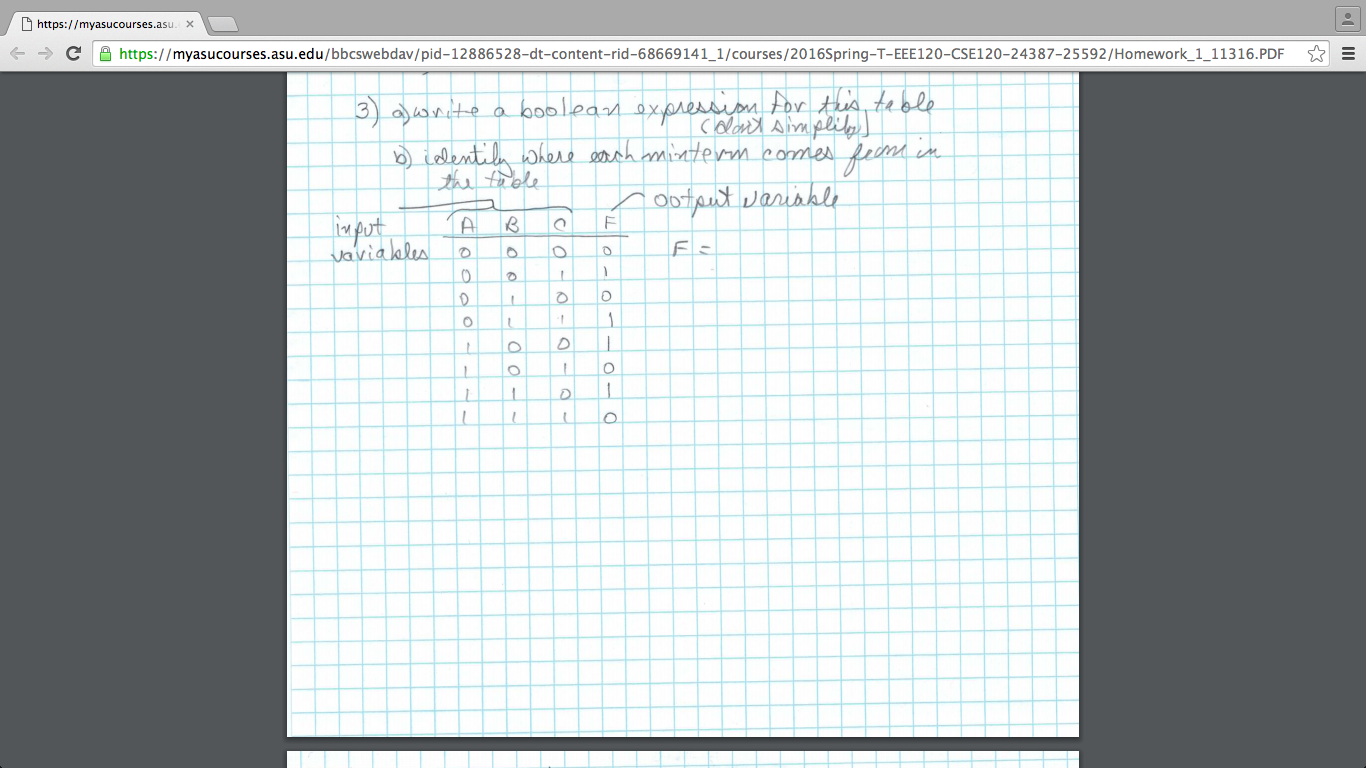 https://myasucourses.asu.
https://myasucourses.asu.edu/bbcswebdav/pid-12886528-dt-content-rid-68669141_1/courses/2016Spring-T-EEE120-CSE120-24387-25592/Homework_1_11316.PDF
3) a) write a boolean expression for this table
(don't simplify)
b) identify where each minterm comes from in
the table
output variable
input A B C F
variables 0 0 0 0 F =
0 0 1 1
0 1 0 0
0 1 1 1
1 0 0 1
1 0 1 0
1 1 0 1
1 1 1 0